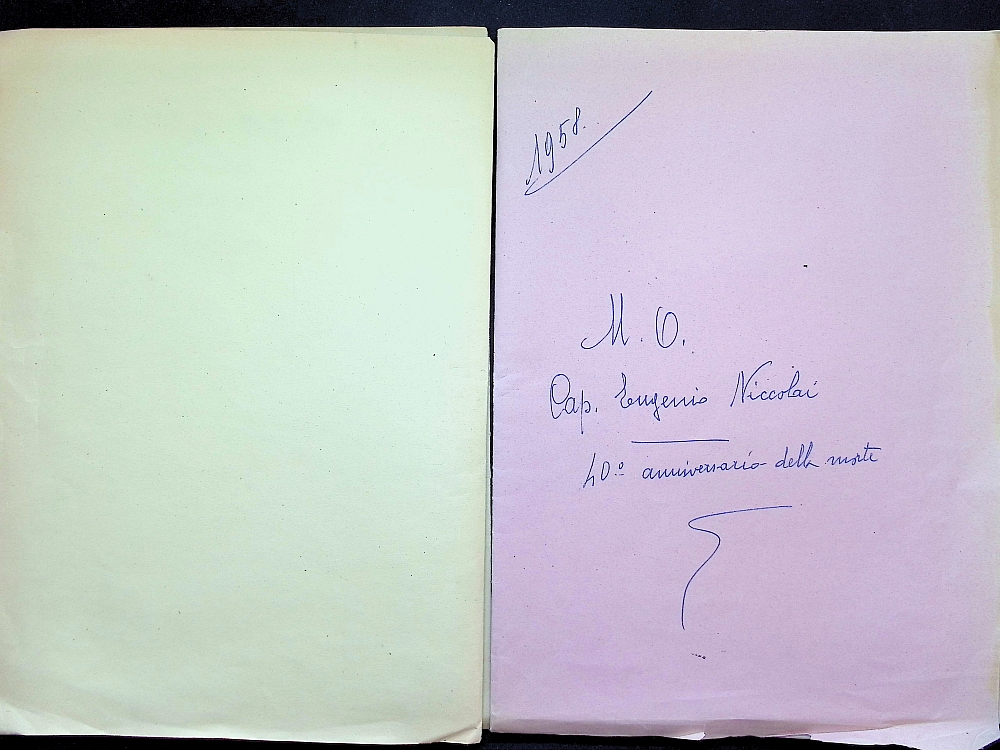 1958.
M. O.
Cap. Eugenio Niccolai
40º anniversario della morte